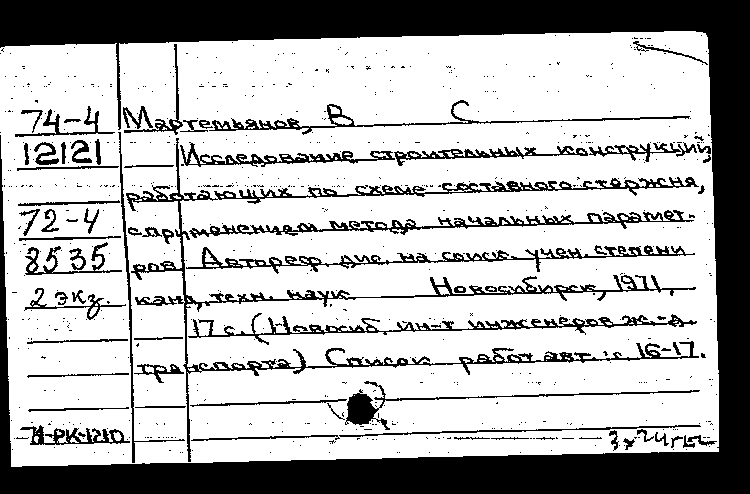 74-4 Мартемьянов, В С
12121 Исследование строительных конструкций,
работающих по схеме составного стержня,
72-4 с применением метода начальных парамет-
8535 ров. Автореф. дис. на соиск. учен. степени
2 экз. канд. техн. наук Новосибирск, 1971.
17 с. (Новосиб. ин-т инженеров ж.-д.
транспорта) Список работ авт.: с. 16-17.
71-РК-1210